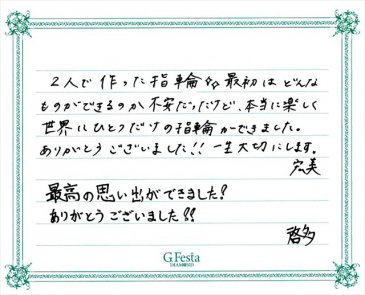 2人で作った指輪☆☆最初はどんな
ものができるのか不安だったけど、本当に楽しく
世界にひとつだけの指輪ができました。
ありがとうございました!!一生大切にします。
宏美
最高の思い出ができました!
ありがとうございました!!
啓多
G.Festa
DIAMOND